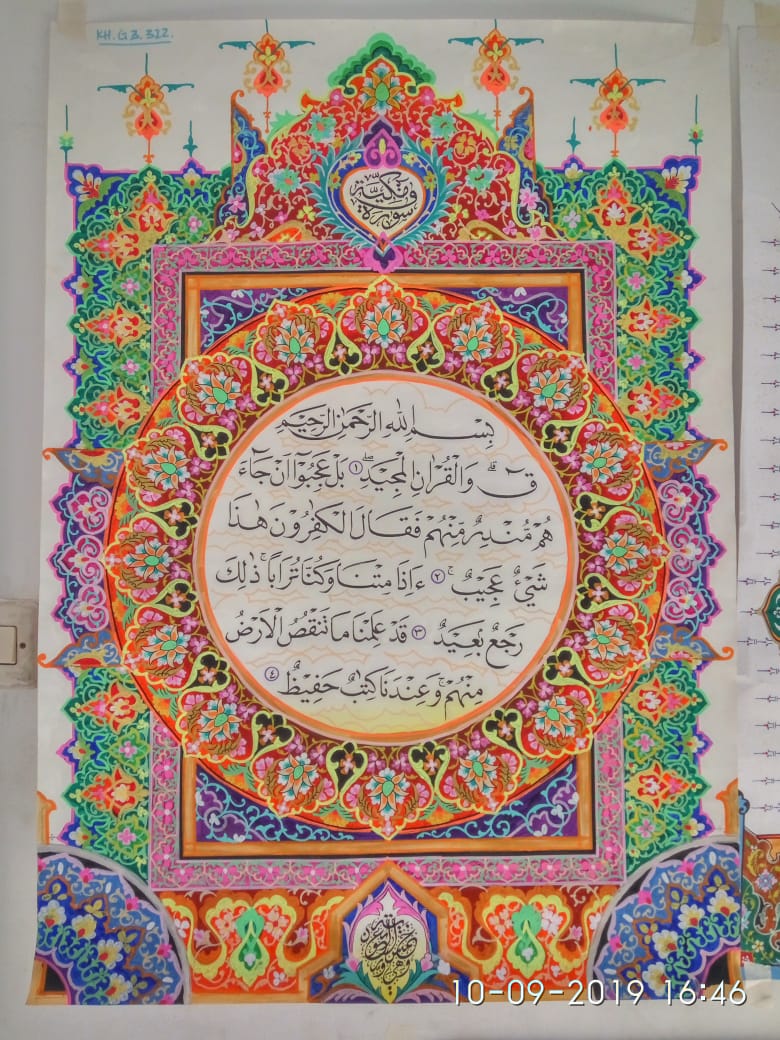 KH.G3.322.
سورة ق مكية
بِسْمِ اللّٰهِ الرَّحْمٰنِ الرَّحِيْمِ
قۤ ۗ وَالْقُرْاٰنِ الْمَجِيْدِۖ ۝١ بَلْ عَجِبُوْٓا اَنْ جَاۤءَ
هُمْ مُّنْذِرٌ مِّنْهُمْ فَقَالَ الْكٰفِرُوْنَ هٰذَا
شَيْءٌ عَجِيْبٌ ۚ ۝٢ ءَاِذَا مِتْنَا وَكُنَّا تُرَابًا ۚ ذٰلِكَ
رَجْعٌ بَعِيْدٌ ۝٣ قَدْ عَلِمْنَا مَا تَنْقُصُ الْاَرْضُ
مِنْهُمْ ۚ وَعِنْدَنَا كِتٰبٌ حَفِيْظٌ ۝٤
10-09-2019 16:46